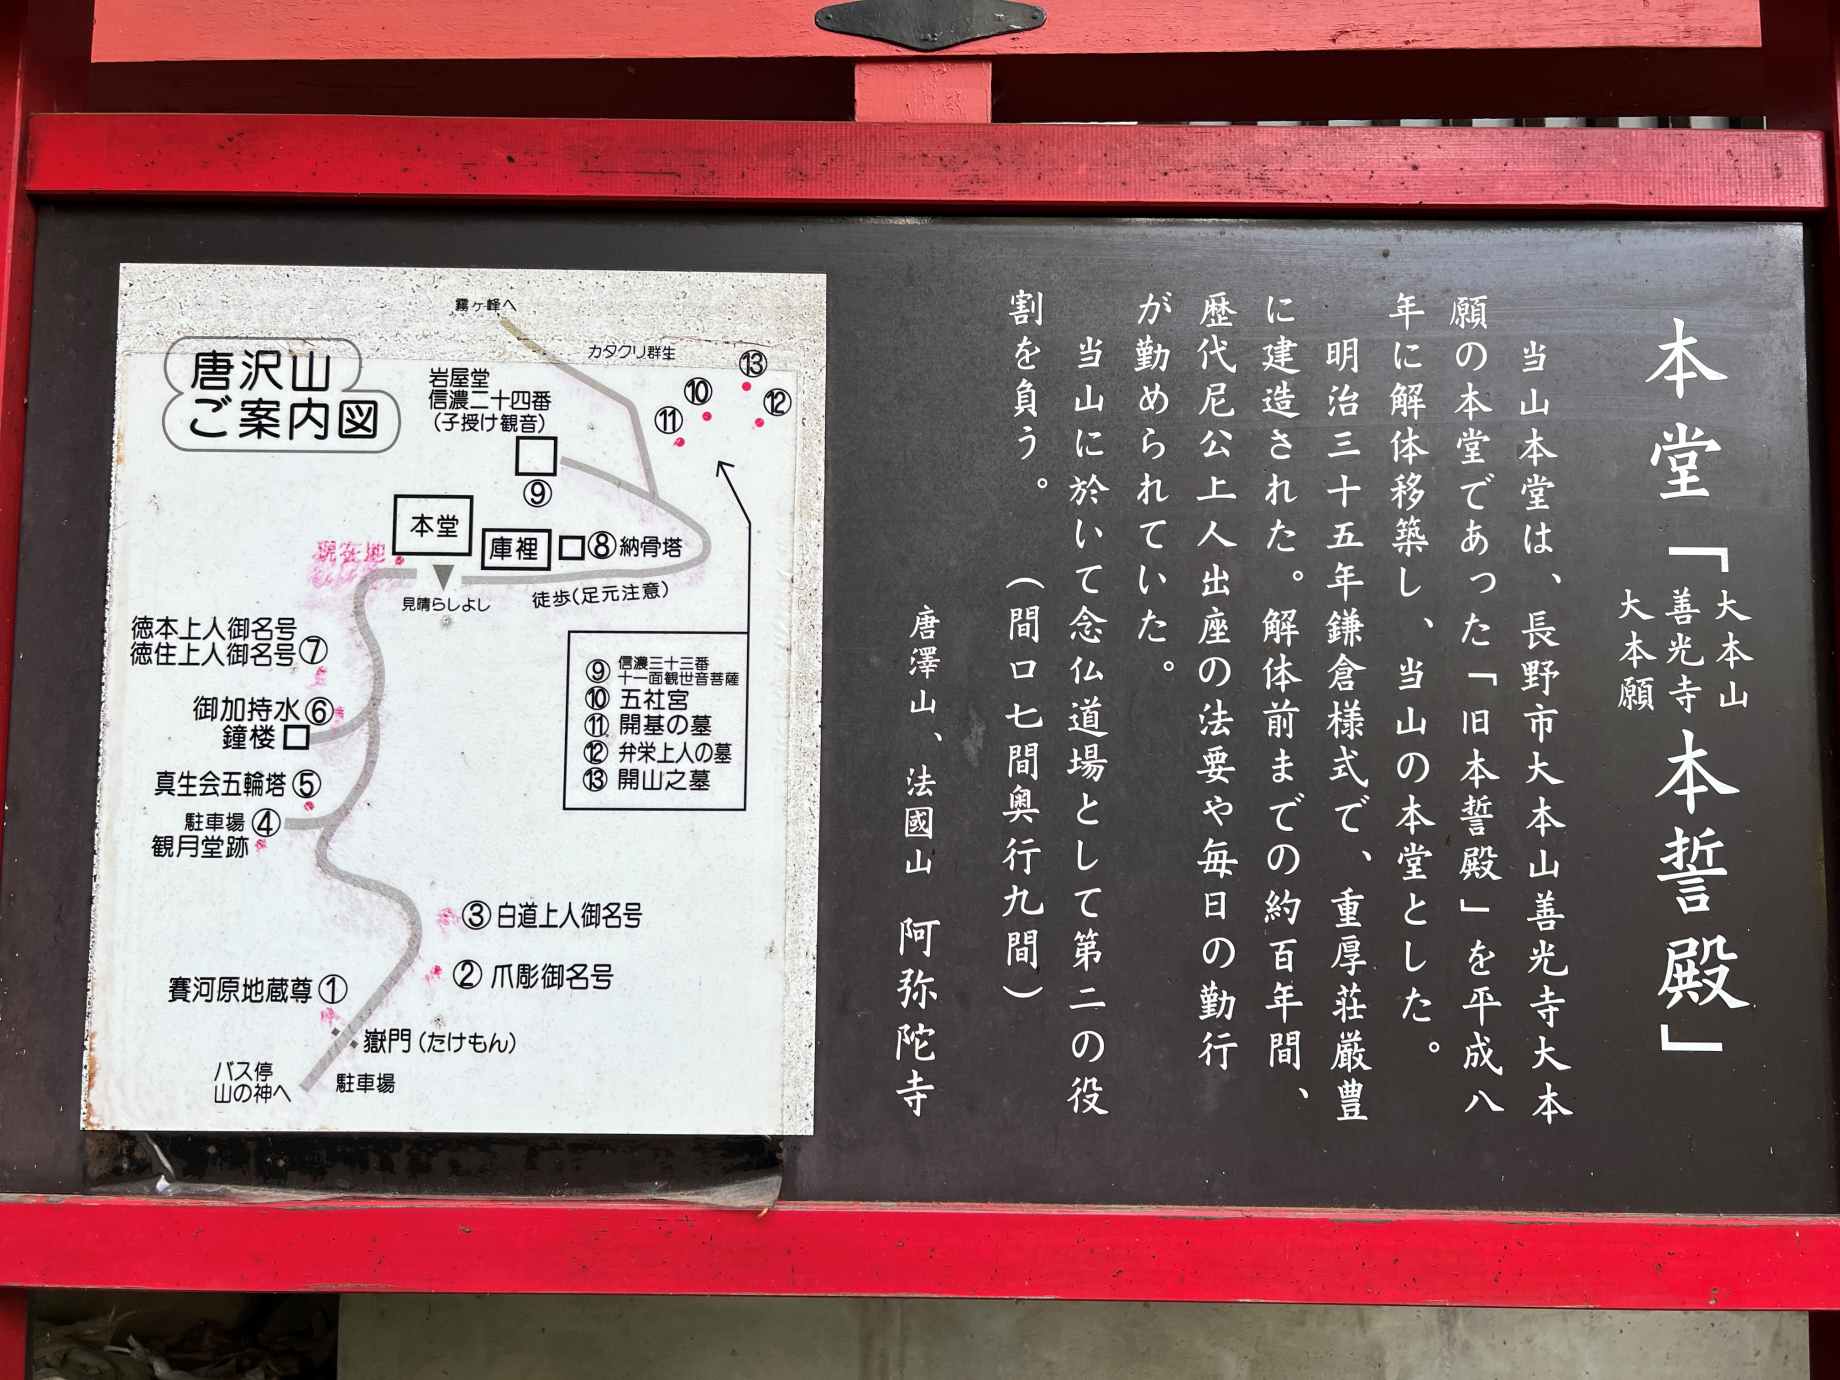 本堂「大本山善光寺大本願本誓殿」
当山本堂は、長野市大本山善光寺大本
願の本堂であった「旧本誓殿」を平成八
年に解体移築し、当山の本堂とした。
明治三十五年鎌倉様式で、重厚荘厳豊
に建造された。解体前までの約百年間、
歴代尼公上人出座の法要や毎日の勤行
が勤められていた。
当山に於いて念仏道場として第二の役
割を負う。（間口七間奥行九間）
唐澤山、法國山 阿弥陀寺
唐沢山
ご案内図
霧ヶ峰へ
カタクリ群生
岩屋堂
信濃二十四番
(子授け観音)
⑨
⑬
⑩
⑫
⑪
本堂
庫裡
⑧納骨塔
現在地
見晴らしよし
徒歩(足元注意)
徳本上人御名号
徳住上人御名号⑦
御加持水⑥
鐘楼
真生会五輪塔⑤
駐車場④
観月堂跡
③白道上人御名号
②爪彫御名号
賽河原地蔵尊①
嶽門(たけもん)
バス停
山の神へ
駐車場
⑨信濃三十三番
十一面観世音菩薩
⑩五社宮
⑪開基の墓
⑫弁栄上人の墓
⑬開山之墓